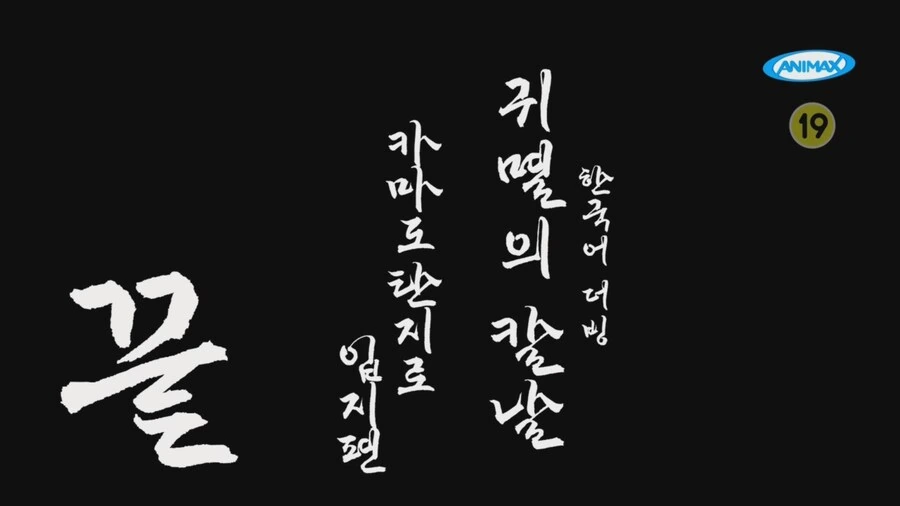 한국어 더빙
귀멸의 칼날
카마도 탄지로
입지편
끝
ANIMAX
19